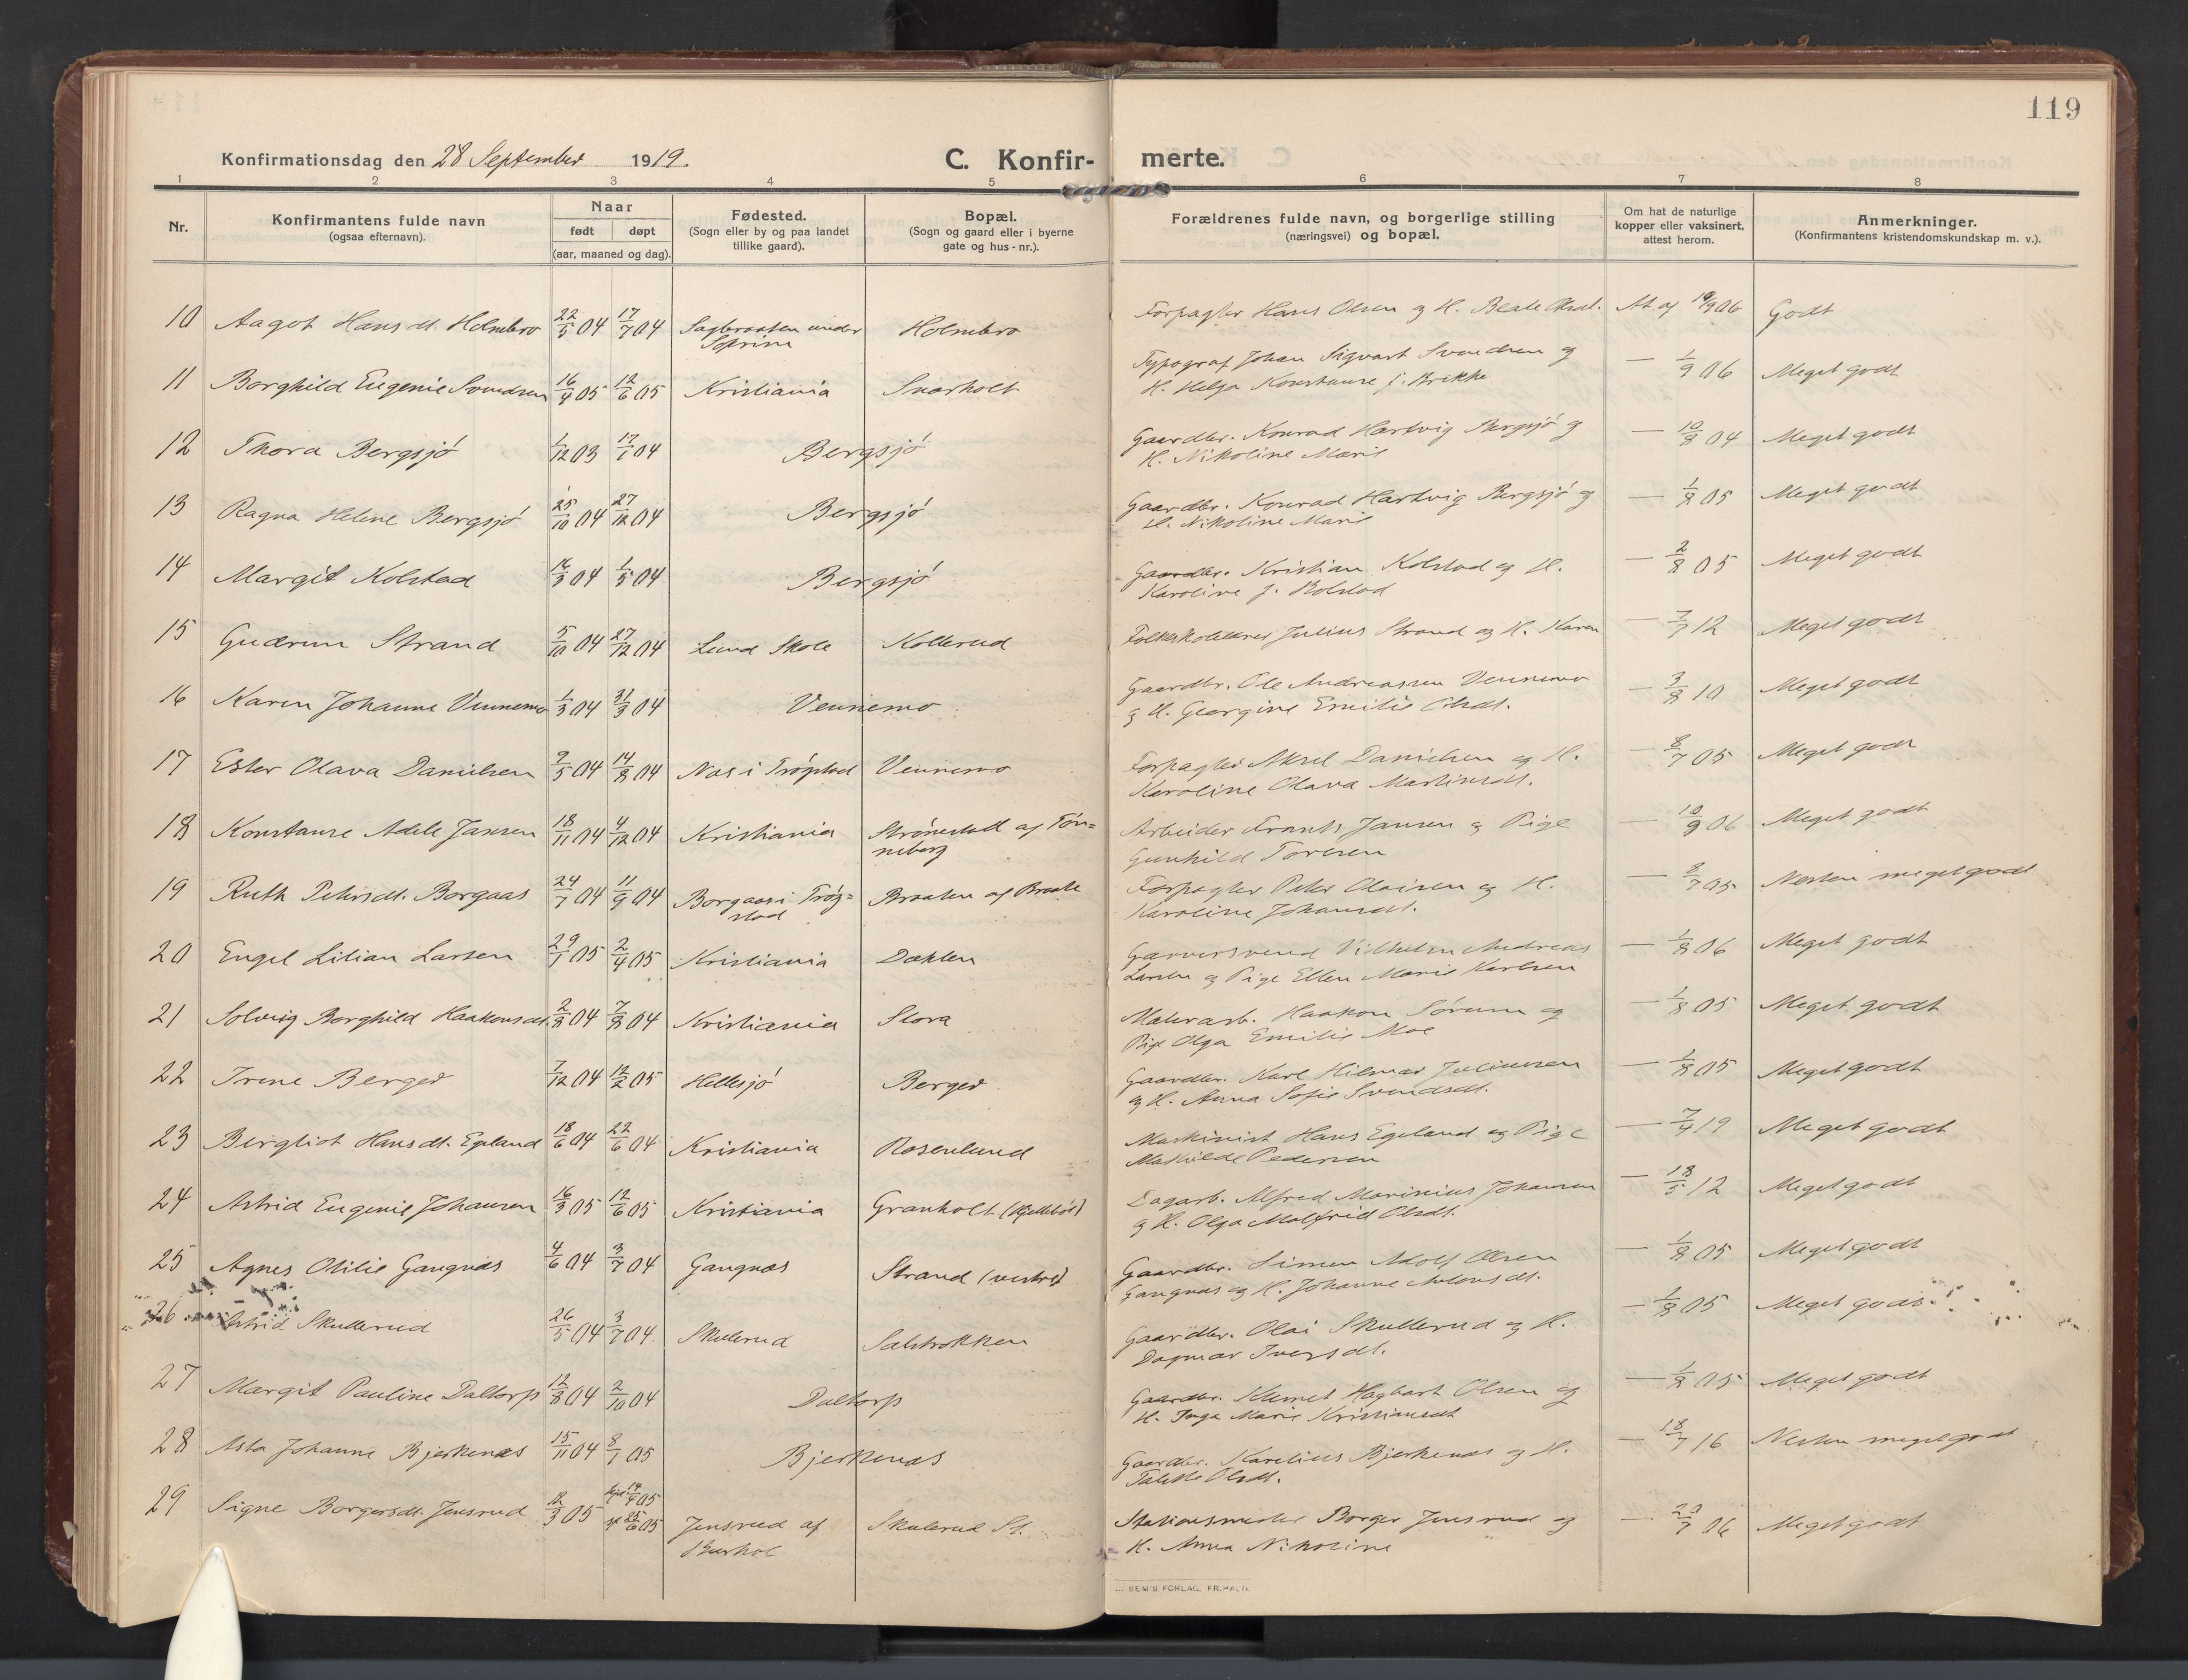 119
Konfirmationsdag den 28 September 1919.
C. Konfir- merte.
1 2 3 4 5 6 7 8
Nr.
Konfirmantens fulde navn
(ogsaa efternavn).
Naar
født døpt
(aar, maaned og dag).
Fødested.
(Sogn eller by og paa landet
tillike gaard).
Bopæl.
(Sogn og gaard eller i byerne
gate og hus-nr.).
Forældrenes fulde navn, og borgerlige stilling
(næringsvei) og bopæl.
Om hat de naturlige
kopper eller vaksinert,
attest herom.
Anmerkninger.
(Konfirmantens kristendomskundskap m. v.).
10 Aagot Hansdt. Holmbro 22/5 04 17/7 04 Sagbraaten under Holmbro Forpagter Hans Olsen og H. Beate Olsdt. At. af 19/9 06 Godt
11 Borghild Eugenie Svendsen 16/4 05 12/6 05 Kristiania Snarholt Typograf Johan Sigvart Svendsen og
H. Helga Konstanse f. Brekke — 1/9 06 Meget godt
12 Thora Bergsjó 1/12 03 17/1 04 Bergsjó Gaardbr. Konrad Hartvig Bergsjó og
H. Nikoline Marie — 10/8 04 Meget godt
13 Ragna Helene Bergsjó 25/10 04 27/12 04 Bergsjó Gaardbr. Konrad Hartvig Bergsjó og
H. Nikoline Marie — 1/8 05 Meget godt
14 Margit Kolstad 16/3 04 1/5 04 Bergsjó Gaardbr. Kristian Kolstad og H.
Karoline f. Kolstad — 2/8 05 Meget godt
15 Gudrun Strand 5/10 04 27/12 04 Lund Skole Kollerud Folkeskolelærer Julius Strand og H. Karen — 7/7 12 Meget godt
16 Karen Johanne Vennemo 1/3 04 31/3 04 Vennemo Gaardbr. Ole Andreassen Vennemo
og H. Georgine Emilie Olsdt. — 3/8 10 Meget godt
17 Ester Olava Danielsen 9/5 04 14/8 04 Nas i Trógstad Vennemo Forpagter Aksel Danielsen og H.
Karoline Olava Martinsdt. — 8/7 05 Meget godt
18 Konstanse Adele Jansen 18/11 04 4/12 04 Kristiania Strónstad af Tón=
neberg Arbeider Frants Jansen og Pige
Gunhild Toresen — 10/9 06 Meget godt
19 Ruth Petersdt. Borgaas 24/7 04 11/9 04 Borgaas i Tróg=
stad Braaten af Braate Forpagter Peter Olaisen og H.
Karoline Johansdt. — 8/7 05 Nesten meget godt
20 Engel Lilian Larsen 29/1 05 2/4 05 Kristiania Dæhlen Garversvend Vilhelm Andreas
Larsen og Pige Ellen Marie Karlsen — 1/8 06 Meget godt
21 Solveig Borghild Haakonsdt. 2/3 04 7/8 04 Kristiania Slora Malerarb. Haakon Sórum og
Pige Olga Emilie Moe — 1/8 05 Meget godt
22 Irene Berger 7/12 04 12/2 05 Hellesjó Berger Gaardbr. Karl Hilmar Juliussen
og H. Anna Sofie Svendsdt. — 1/8 05 Meget godt
23 Bergliot Hansdt. Egeland 18/6 04 22/6 04 Kristiania Rosenlund Maskinist Hans Egeland og Pige
Mathilde Pedersen — 7/4 19 Meget godt
24 Astrid Eugenie Johansen 16/3 05 12/6 05 Kristiania Granholt (Kjelleból) Dagarb. Alfred Marinius Johansen
og H. Olga Malfrid Olsdt. — 18/5 12 Meget godt
25 Agnes Otilie Gangnæs 4/6 04 3/7 04 Gangnæs Strand (vestre) Gaardbr. Simen Adolf Olsen
Gangnæs og H. Johanne Antonsdt. — 1/8 05 Meget godt
26 Astrid Skullerud 26/5 04 3/7 04 Skulerud Salstrokken Gaardbr. Olai Skullerud og H.
Dagmar Iversdt. — 1/8 05 Meget godt
27 Margit Pauline Daltorp 12/8 04 2/10 04 Daltorp Gaardbr. Klemet Hagbart Olsen og
H. Inga Marie Kristiansdt — 1/8 05 Meget godt
28 Asta Johanne Bjerkenæs 15/11 04 8/1 05 Bjerkenæs Gaardbr. Karelius Bjerkenæs og H.
Talette Olsdt. — 18/7 16 Nesten meget godt
29 Signe Borgersdt. Jensrud 12/3 05 14/4 05 25/6 05 Jensrud af Skulerud St. Stationsmester Borger Jensrud og
H. Anna Nikoline — 29/7 06 Meget godt
SEM'S FORLAG, FR.HALD.